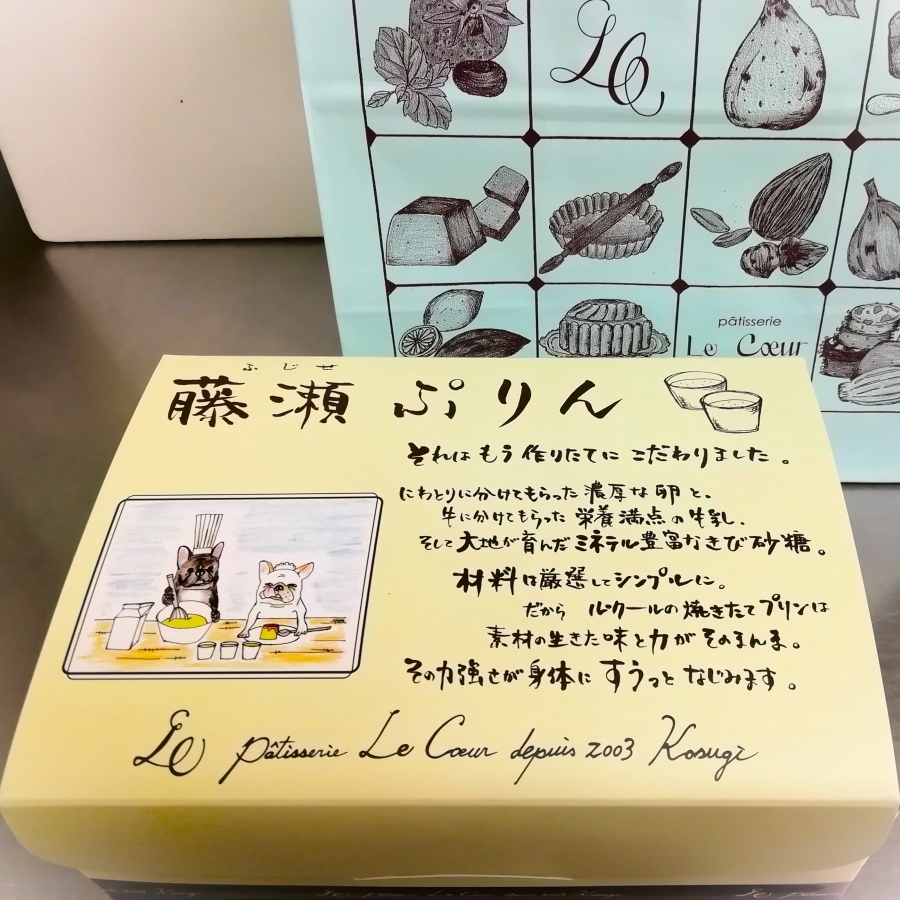 LC
pâtisserie
Le Cœur
ふじせ
藤瀬 ぷりん
それはもう作りたてにこだわりました。
にわとりに分けてもらった濃厚な卵と、
牛に分けてもらった栄養満点の牛乳、
そして大地が育んだミネラル豊富なきび砂糖。
材料は厳選してシンプルに。
だから ル・クールの焼きたてプリンは
素材の生きた味と力がそのまんま。
その力強さが身体にすうっとなじみます。
LC pâtisserie Le Cœur depuis 2003 Kosugi